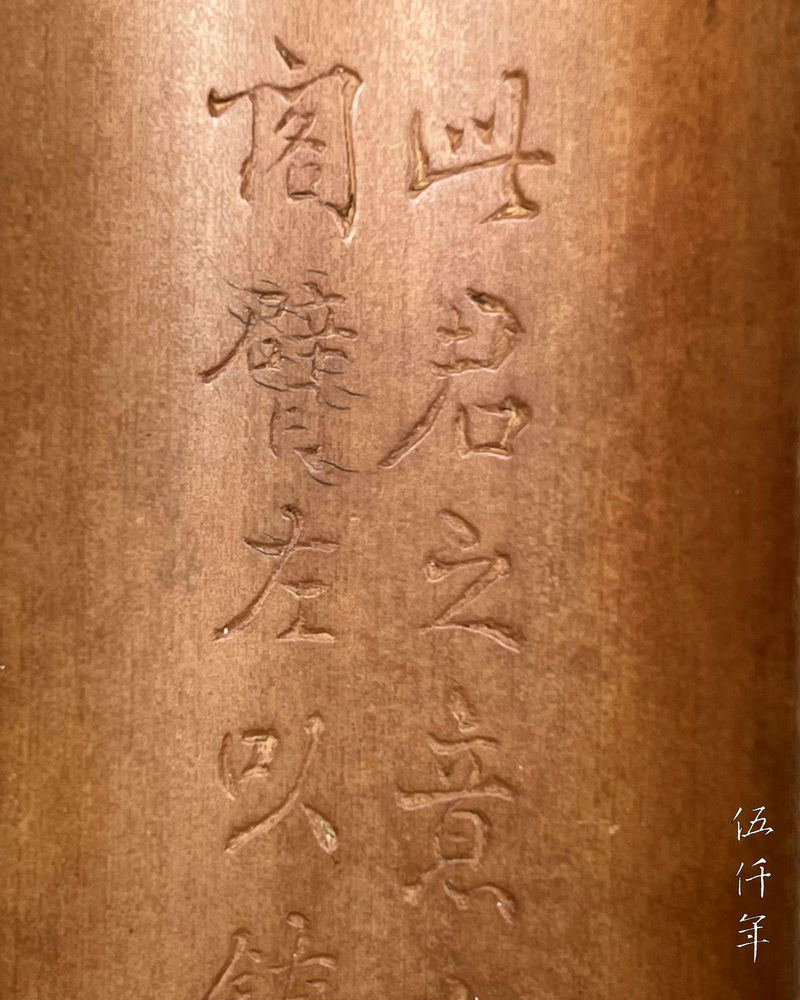 此君之意
閣臂左以
伍仟年